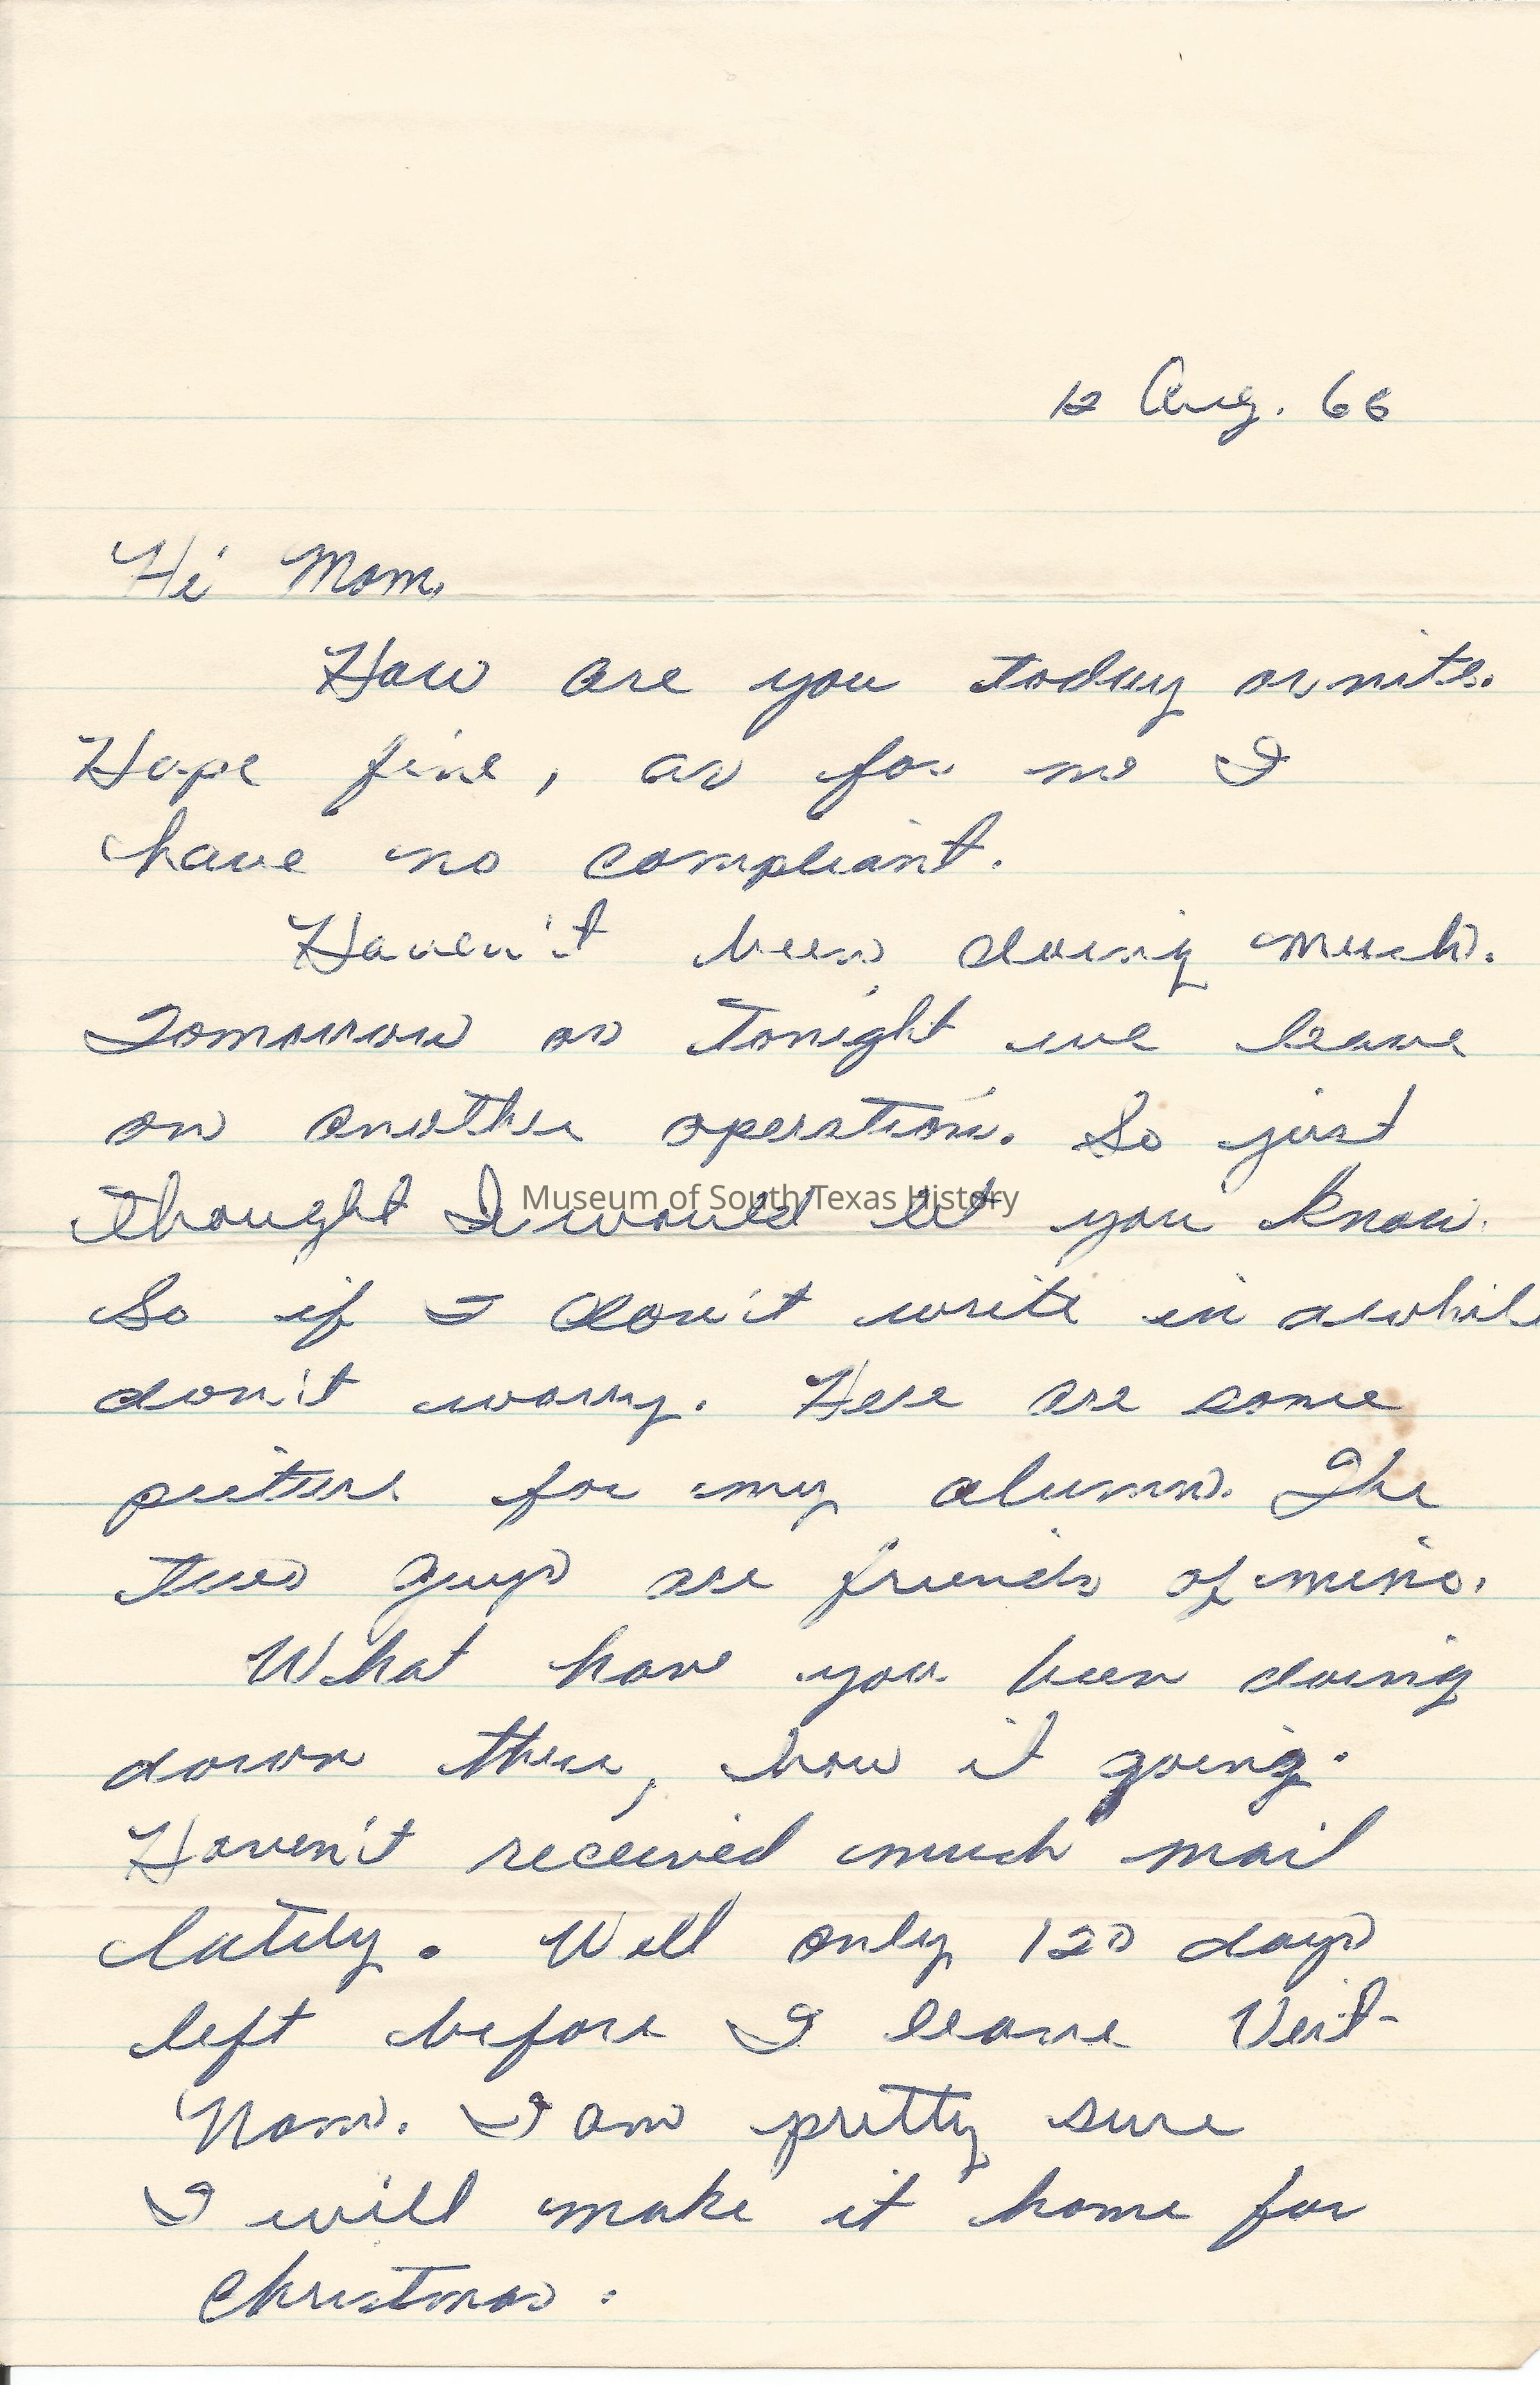 12 Aug. 66
Hi Mom,
How are you today or nite.
Hope fine, as for me I
have no compliant.
Haven't been doing much.
Tomorrow or tonight we leave
on another operation. So just
thought I would let you know.
Museum of South Texas History
So if I don't write in awhile
don't worry. Here are some
picture for my alumn. The
two guys are friends of mine.
What have you been doing
down there, how it going.
Haven't received much mail
lately. Well only 120 days
left before I leave Veit-
Nam. I am pretty sure
I will make it home for
Christmas.